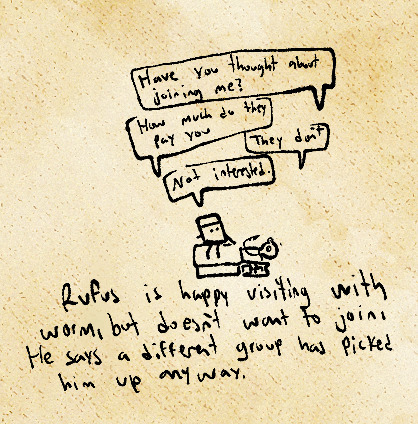 Have you thought about
joining me?
How much do they
pay you
They don't
Not interested.
Rufus is happy visiting with
worm, but doesn't want to join.
He says a different group has picked
him up anyway.